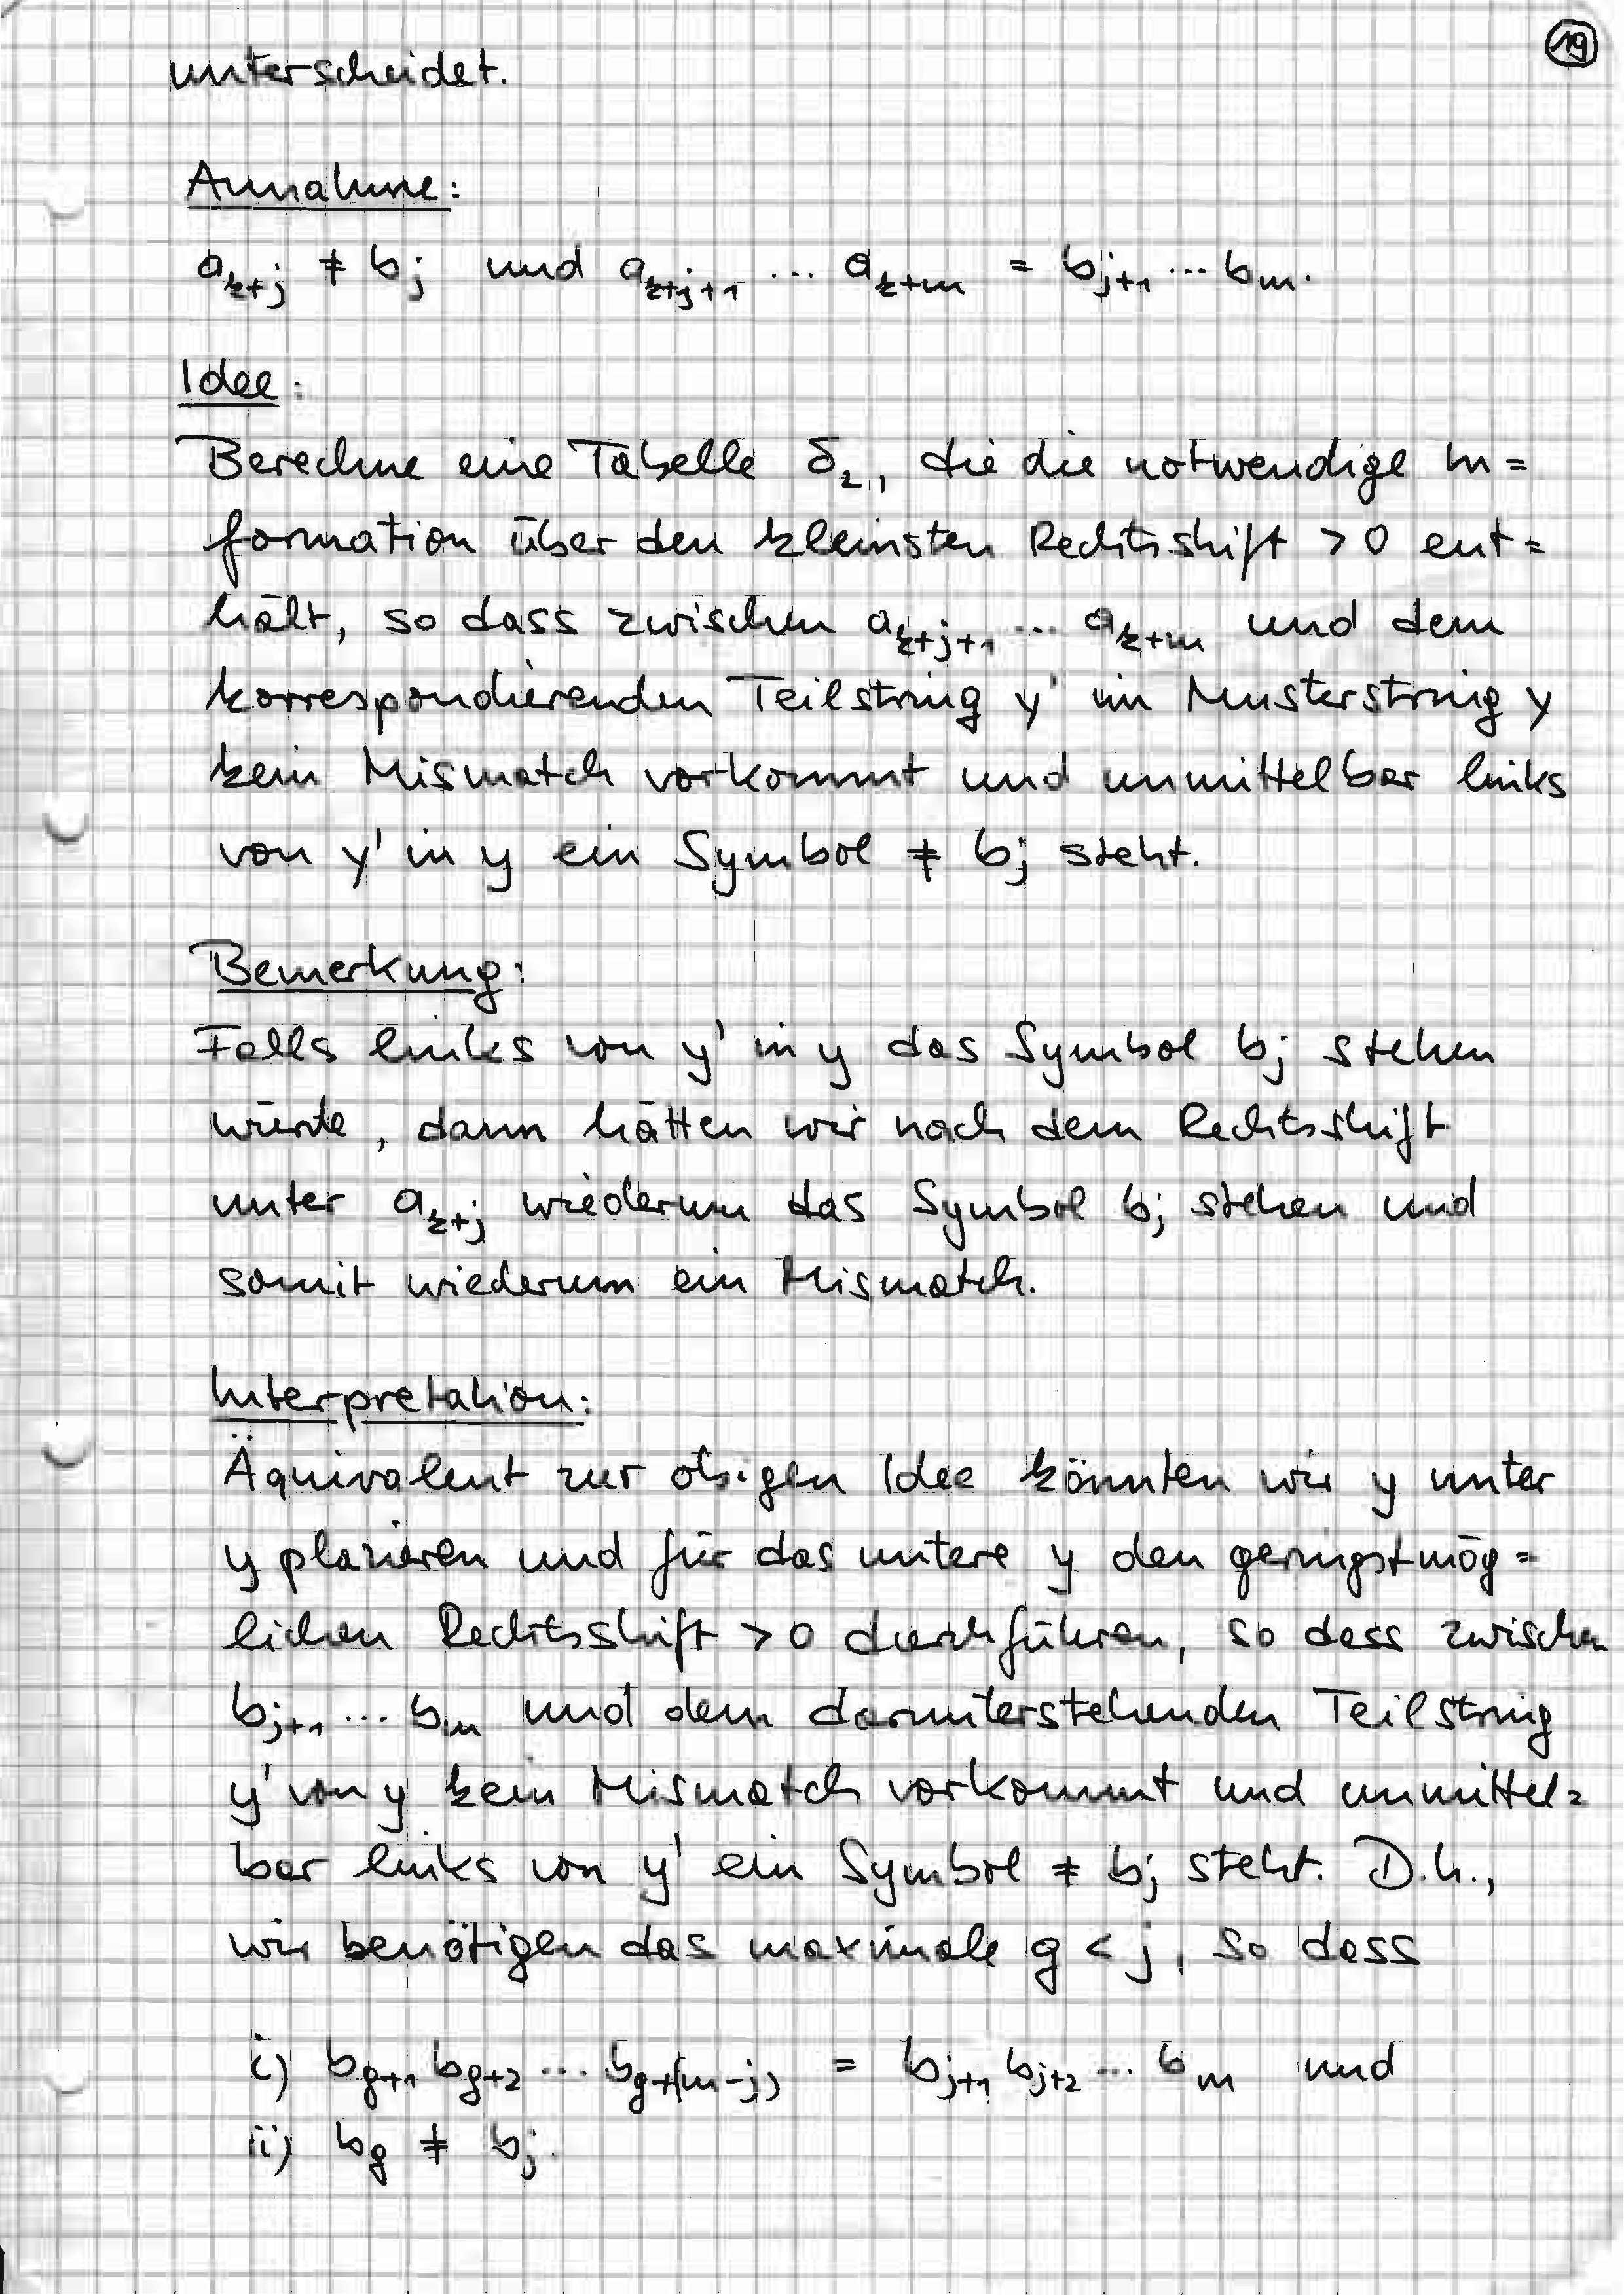 19
unterscheidet.
Annahme:
a_{k+j} ≠ b_j und a_{k+j+1} ... a_{k+m} = b_{j+1} ... b_m.
Idee:
Berechne eine Tabelle δ_2, die die notwendige In=
formation über den kleinsten Rechtsshift > 0 ent=
hält, so dass zwischen a_{k+j+1} ... a_{k+m} und dem
korrespondierenden Teilstring y' im Musterstring y
kein Mismatch vorkommt und unmittelbar links
von y' in y ein Symbol ≠ b_j steht.
Bemerkung:
Falls links von y' in y das Symbol b_j stehen
würde, dann hätten wir nach dem Rechtsshift
unter a_{k+j} wiederum das Symbol b_j stehen und
somit wiederum ein Mismatch.
Interpretation:
Äquivalent zur obigen Idee könnten wir y unter
y plazieren und für das untere y den geringstmög=
lichen Rechtsshift > 0 durchführen, so dass zwischen
b_{j+1} ... b_m und dem darunterstehenden Teilstring
y' von y kein Mismatch vorkommt und unmittel=
bar links von y' ein Symbol ≠ b_j steht. D.h.,
wir benötigen das maximale g < j, so dass
i) b_{g+1} b_{g+2} ... b_{g+(m-j)} = b_{j+1} b_{j+2} ... b_m und
ii) b_g ≠ b_j.